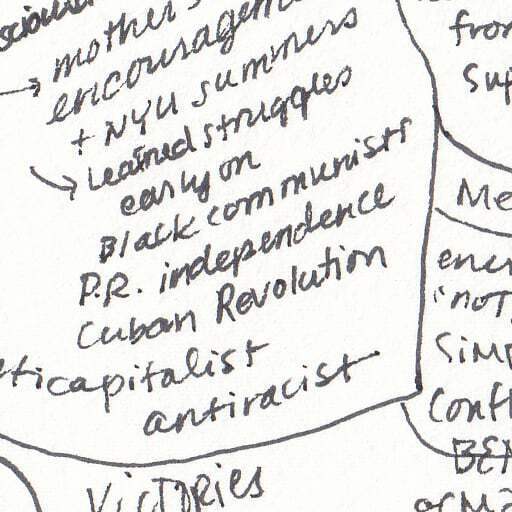 → mother's
encouragem
+ NYU summers
→ Learned struggles
early on
Black communists
P.R. independence
Cuban Revolution
ticapitalist
antiracist
VICTORIES
from
Sup
Me
ener
"not
Simp
Confl
BEN